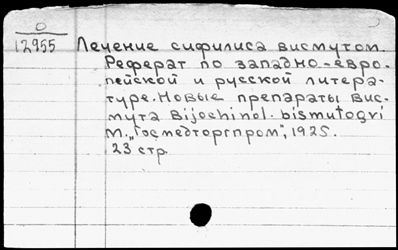 О
12955
Лечение сифилиса висмутом.
Реферат по западно-евро-
пейской и русской литера-
туре. Новые препараты вис-
мута Bijochinol. bismutogvi
М. „Госмедторгпром", 1925.
23 стр.